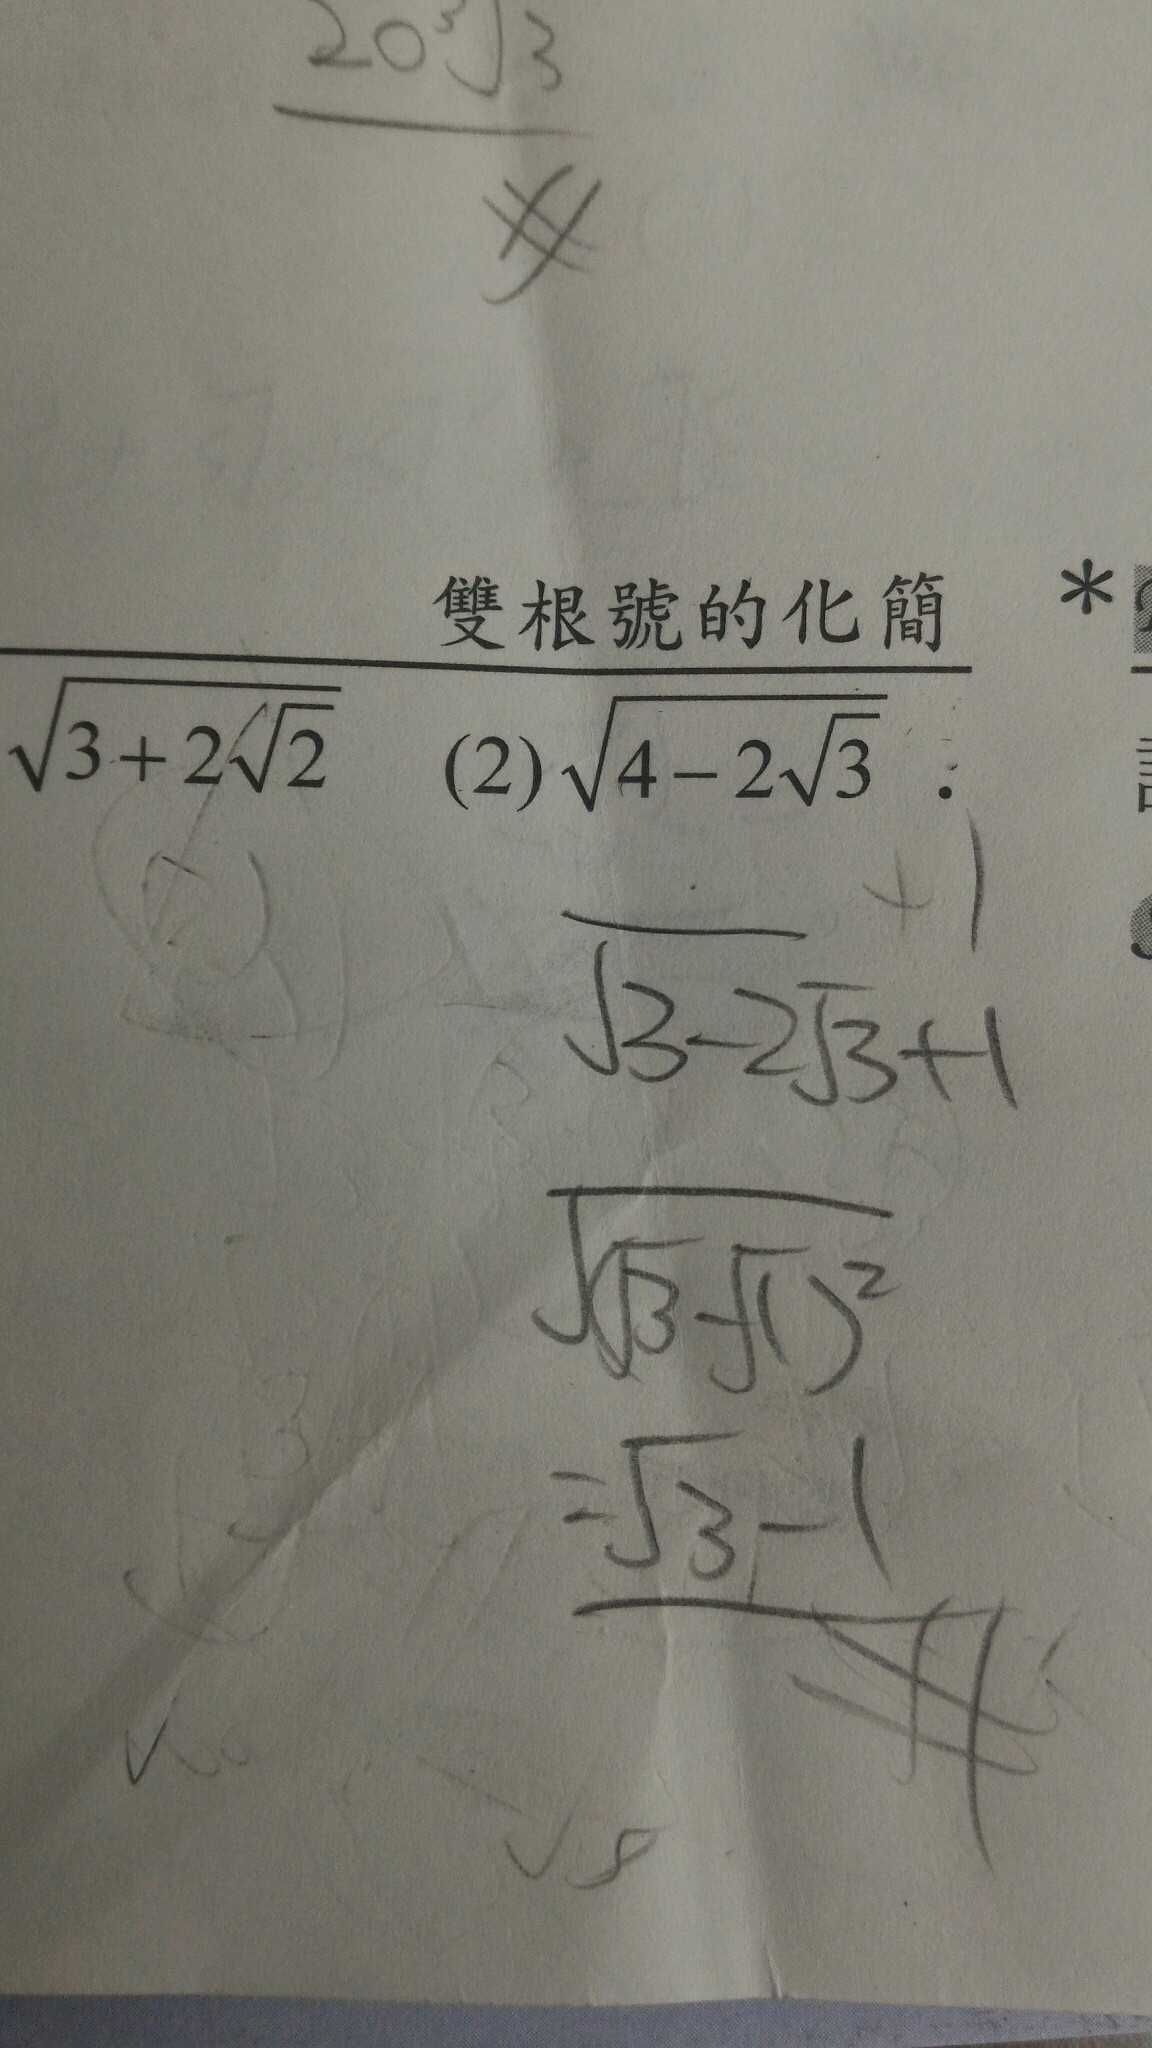 20∛3
雙根號的化簡 *
√(3+2√2) (2) √(4-2√3) .
+1
√3-2√3+1
√(√3-√1)²
=√3-1
√8